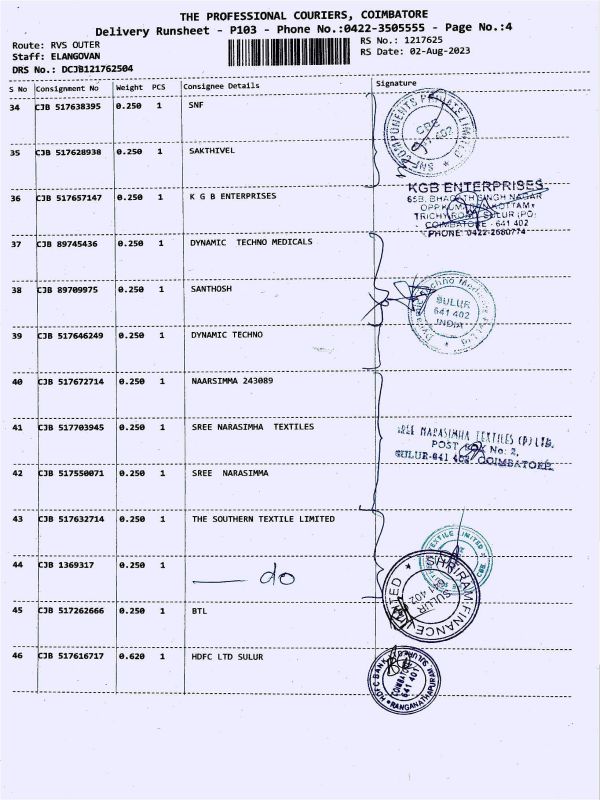 THE PROFESSIONAL COURIERS, COIMBATORE
Delivery Runsheet - P103 - Phone No.:0422-3505555 - Page No.:4
Route: RVS OUTER
Staff: ELANGOVAN
DRS No.: DCJB121762504
RS No.: 1217625
RS Date: 02-Aug-2023
S No Consignment No Weight PCS Consignee Details Signature
34 CJB 517638395 0.250 1 SNF
SNF COMPONENTS PRIVATE LIMITED
CBE
641 402
35 CJB 517628938 0.250 1 SAKTHIVEL
36 CJB 517657147 0.250 1 K G B ENTERPRISES
KGB ENTERPRISES
65B, BHAGATH SINGH NAGAR
TRICHY ROAD, SULUR (PO)
COIMBATORE - 641 402
PHONE: 0422-2680774
37 CJB 89745436 0.250 1 DYNAMIC TECHNO MEDICALS
38 CJB 89709975 0.250 1 SANTHOSH
Dynamic Techno Medicals Pvt Ltd
SULUR
641 402
INDIA
39 CJB 517646249 0.250 1 DYNAMIC TECHNO
40 CJB 517672714 0.250 1 NAARSIMMA 243089
41 CJB 517703945 0.250 1 SREE NARASIMHA TEXTILES
SREE NARASIMHA TEXTILES (P) LTD.
POST BOX No: 2,
SULUR-641 402 COIMBATORE.
42 CJB 517550071 0.250 1 SREE NARASIMMA
43 CJB 517632714 0.250 1 THE SOUTHERN TEXTILE LIMITED
TEXTILE LIMITED
CBE
44 CJB 1369317 0.250 1 do
SHRIRAM FINANCE LIMITED
SULUR
641 402
45 CJB 517262666 0.250 1 BTL
46 CJB 517616717 0.620 1 HDFC LTD SULUR
HDFC BANK
COIMBATORE
641 401